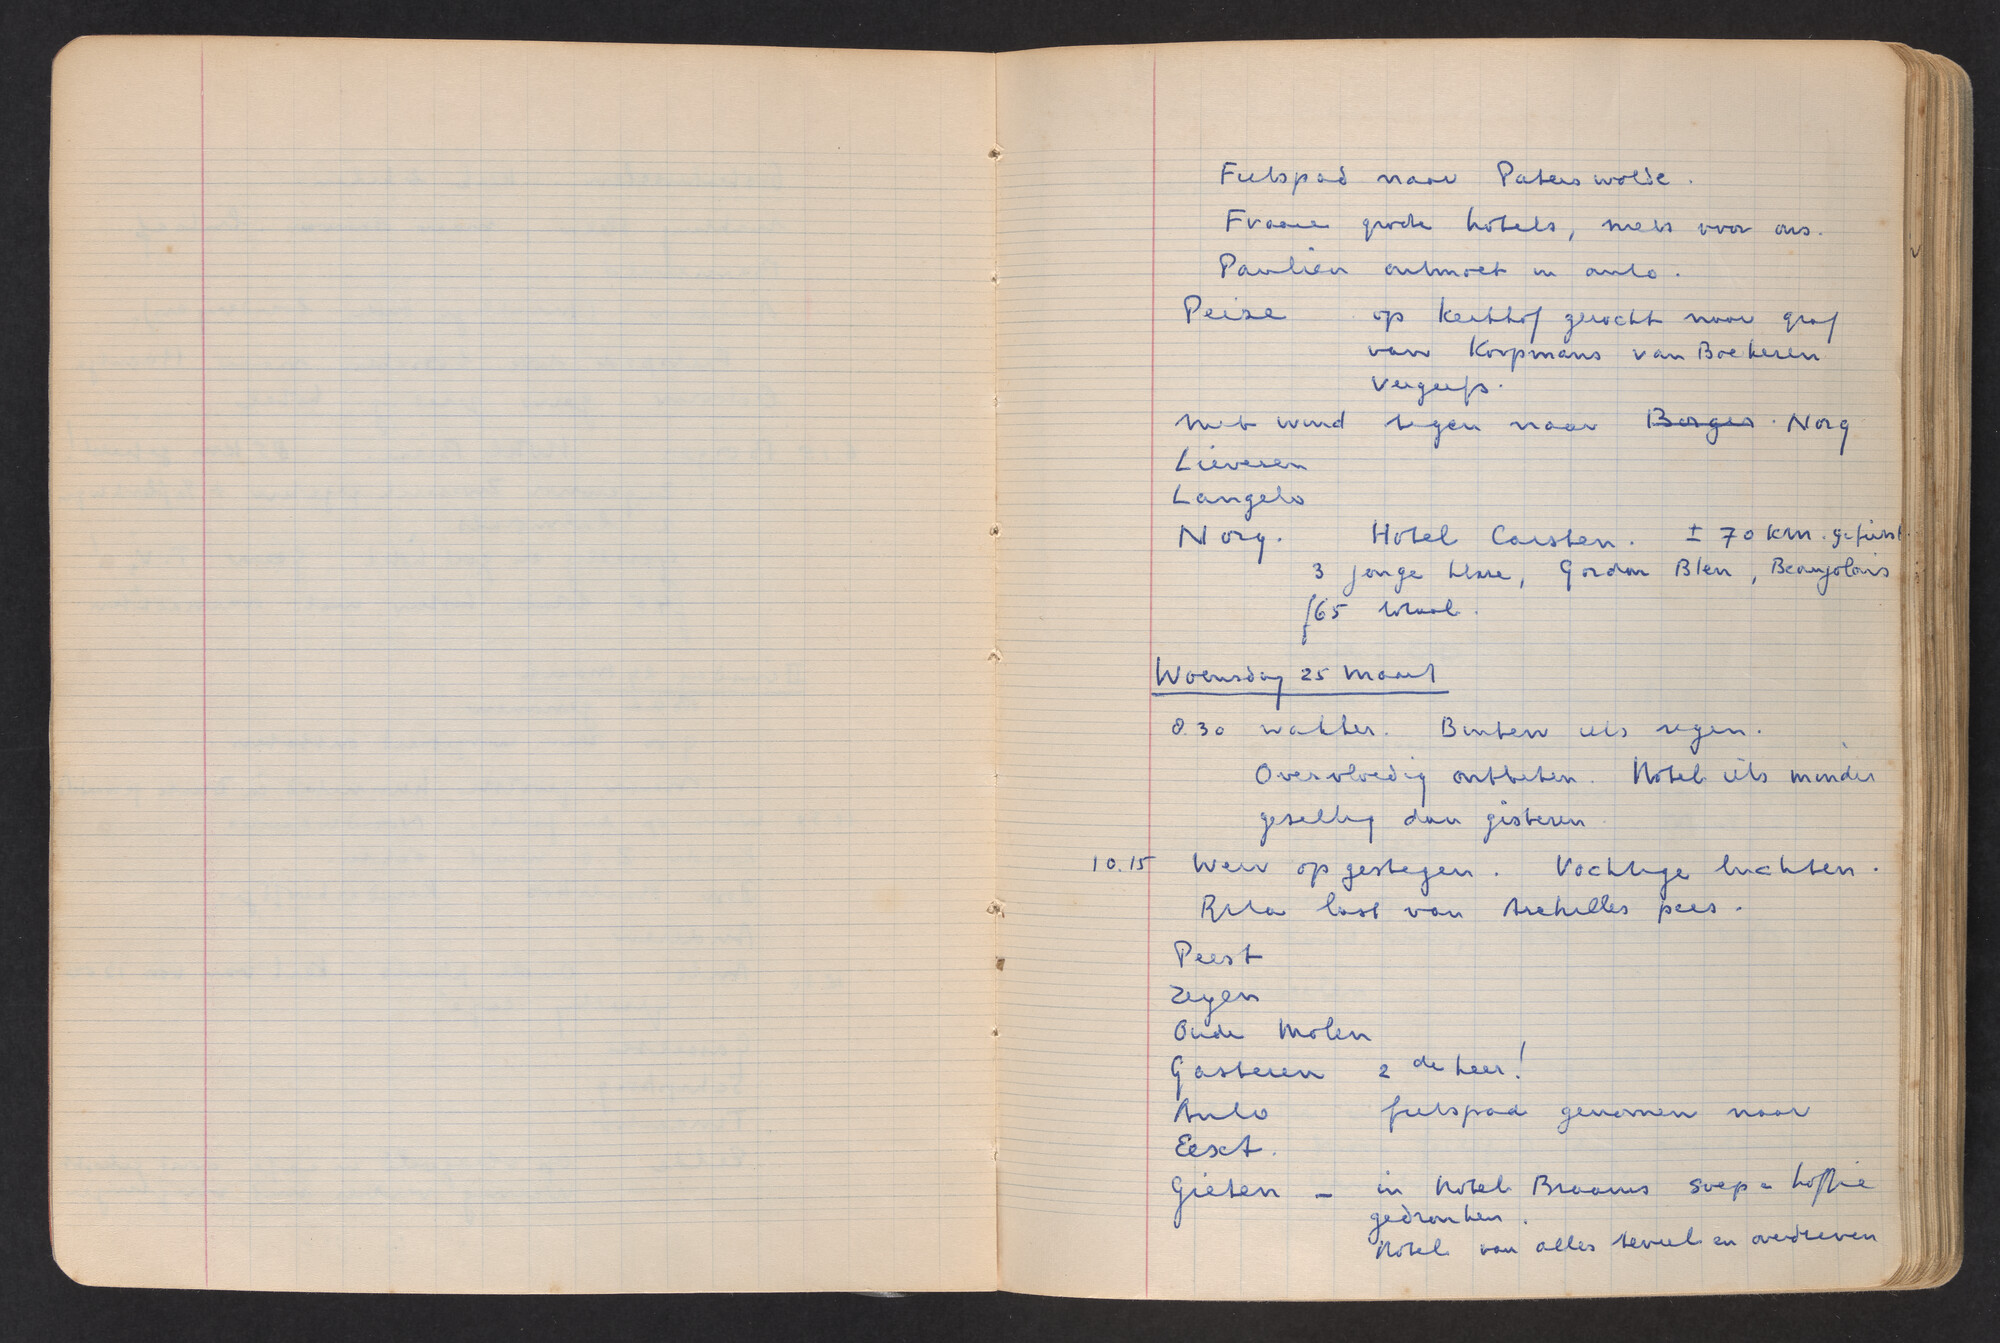 Fietspad naar Paterswolde.
Fraaie grote hotels, niets voor ons.
Paulien ontmoet in auto.
Peize op kerkhof gezocht naar graf
van Koopmans van Boekeren
Vergeefs.
met wind tegen naar Borger. Norg
Lieveren
Langelo
Norg. Hotel Karsten. ± 70 km. gefietst.
3 jonge klare, Gordon Bleu, Beaujolais
ƒ65 totaal.
Woensdag 25 maart
8.30 wakker. Buiten iets regen.
Overvloedig ontbeten. Hotel iets minder
gezellig dan gisteren.
10.15 Weer opgestegen. Vochtige luchten.
Rita last van Archilles pees.
Peest
Zeyen
Oude Molen
Gasteren 2 de keer!
Anlo fietspad genomen naar
Eext.
Gieten – in Hotel Braams soep & koffie
gedronken.
Hotel van alles teveel en overdreven